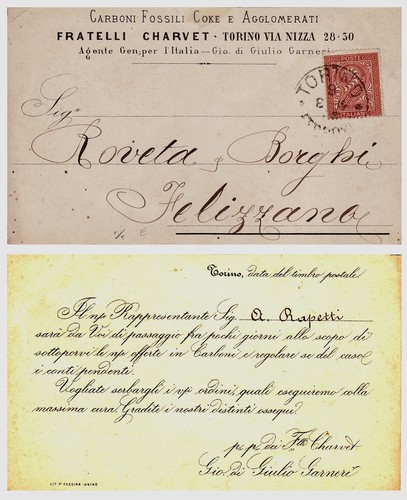 CARBONI FOSSILI COKE E AGGLOMERATI
FRATELLI CHARVET - TORINO VIA NIZZA 28-30
Agente Gen. per l'Italia — Gio. di Giulio Garneri
POSTE
ITALIANE
TORINO
Sig.
Roveta & Borghi
Felizzano
Torino, data del timbro postale.
Il n/ Rappresentante Sig. A. Rapetti
sarà da Voi di passaggio fra pochi giorni allo scopo di
sottoporvi le n/e offerte in Carboni e regolare se del caso
i conti pendenti.
Vogliate serbargli i v/ ordini, quali eseguiremo colla
massima cura. Gradite i nostri distinti ossequi.
p. p. dei F.lli Charvet
Gio. di Giulio Garneri